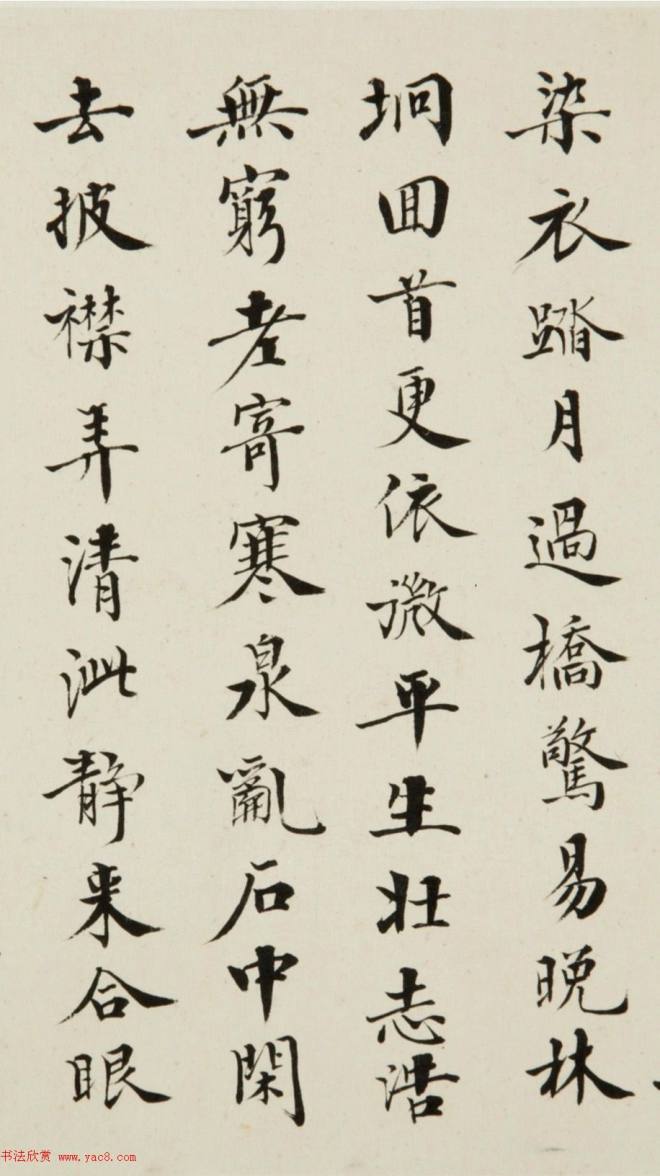 染衣踏月過橋驚易晚林
坰回首更依微平生壯志浩
無窮老寄寒泉亂石中閑
去披襟弄清泚静来合眼
书法欣赏 www.yac8.com